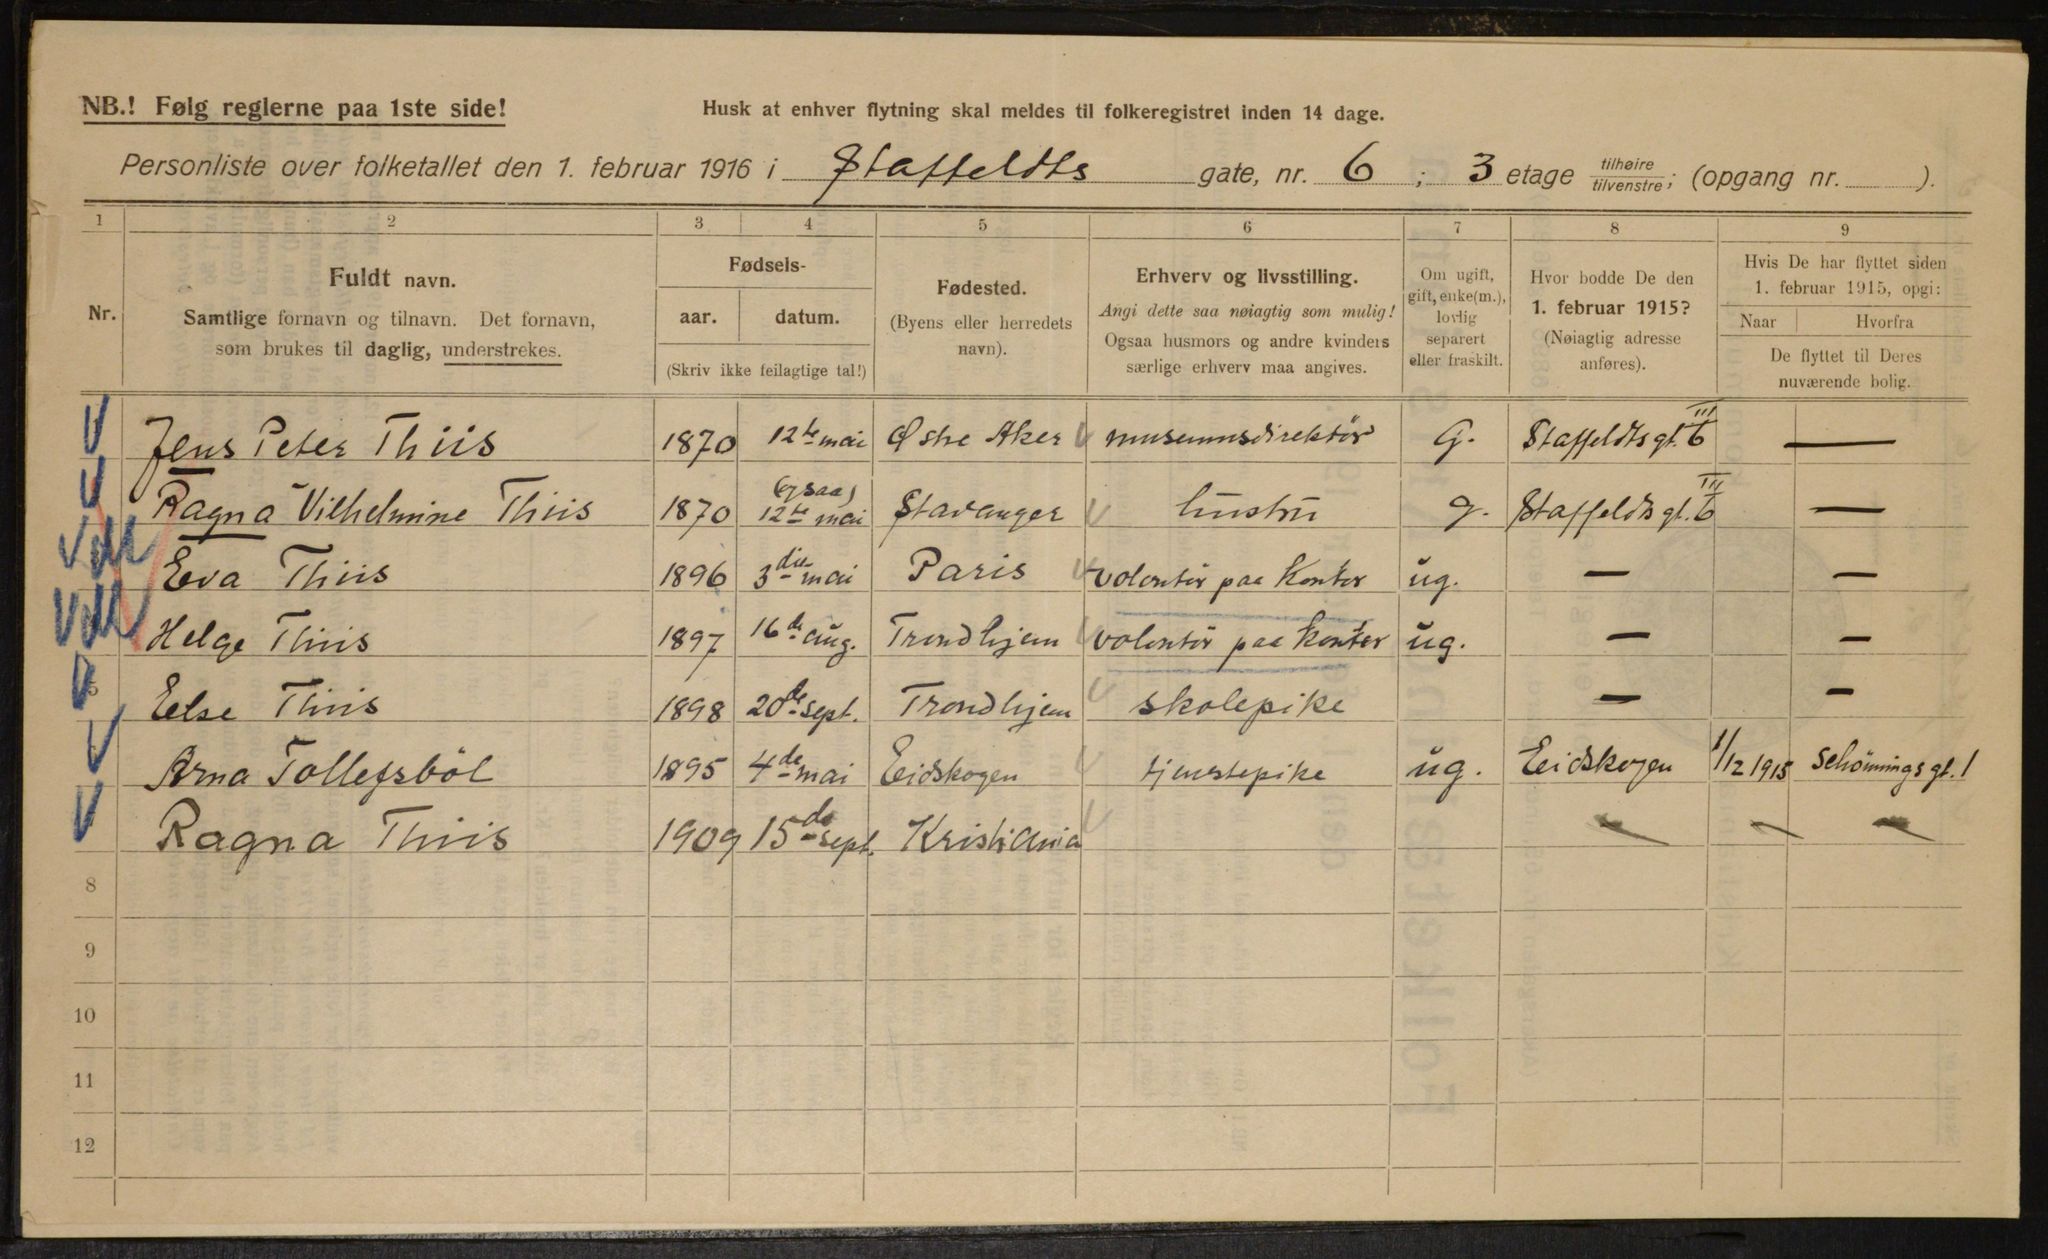 NB.! Følg reglerne paa 1ste side!
Husk at enhver flytning skal meldes til folkeregistret inden 14 dage.
Personliste over folketallet den 1. februar 1916 i Staffeldts gate, nr. 6; 3 etage tilhøire/tilvenstre; (opgang nr. ).
1 2 3 4 5 6 7 8 9
Nr.
Fuldt navn.
Samtlige fornavn og tilnavn. Det fornavn,
som brukes til daglig, understrekes.
Fødsels-
aar. datum.
(Skriv ikke feilagtige tal!)
Fødested.
(Byens eller herredets
navn).
Erhverv og livsstilling.
Angi dette saa nøiagtig som mulig!
Ogsaa husmors og andre kvinders
særlige erhverv maa angives.
Om ugift,
gift, enke(m.),
lovlig
separert
eller fraskilt.
Hvor bodde De den
1. februar 1915?
(Nøiagtig adresse
anføres).
Hvis De har flyttet siden
1. februar 1915, opgi:
Naar Hvorfra
De flyttet til Deres
nuværende bolig.
Jens Peter Thiis 1870 12te mai Østre Aker museumsdirektör G. Staffeldtsgt. 6 III —
Ragna Vilhelmine Thiis 1870 (ogsaa) 12te mai Stavanger hustru g. Staffeldts gt. 6 III —
Eva Thiis 1896 3die mai Paris volontör paa Kontor ug. — —
Helge Thiis 1897 16de aug. Trondhjem volontör paa kontor ug. — —
5 Else Thiis 1898 20de sept. Trondhjem skolepike — —
Arna Tollefsböl 1895 4de mai Eidskogen tjenstepike ug. Eidskogen 1/12 1915 Schönningsgt. 1
Ragna Thiis 1909 15de sept. Kristiania — — —
8
9
10
11
12